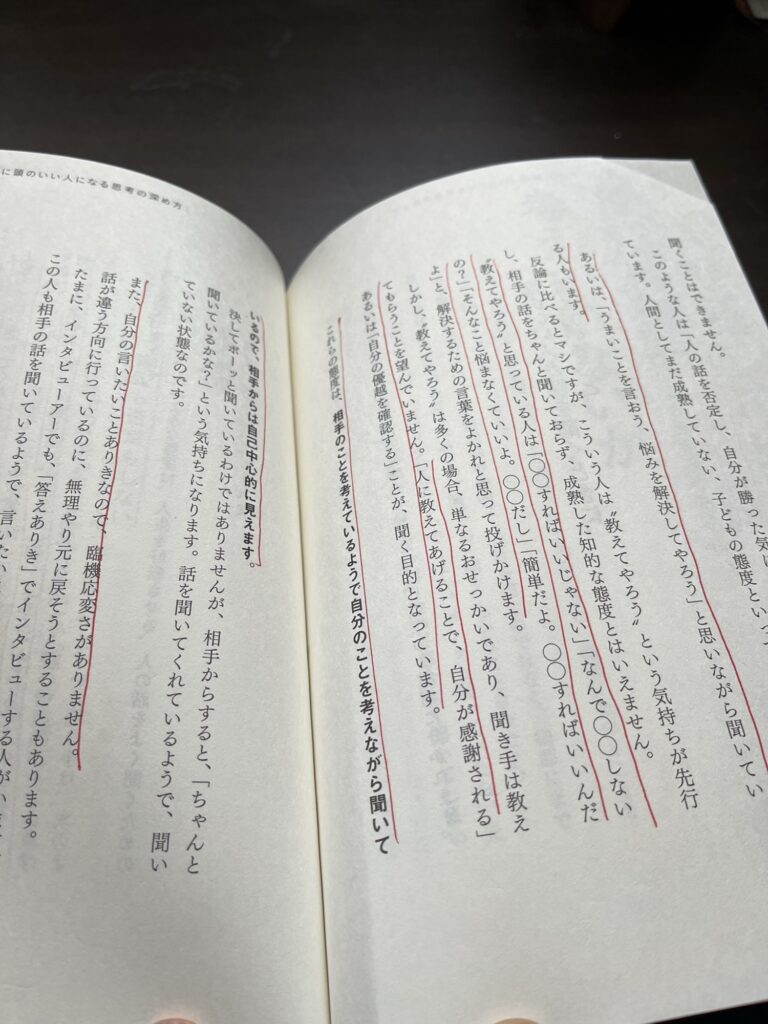 聞くことはできません。
このような人は「人の話を否定し、自分が勝った気に
ています。人間としてまだ成熟していない、子どもの態度といって
あるいは、「うまいことを言おう、悩みを解決してやろう」と思いながら聞いてい
る人もいます。
反論に比べるとマシですが、こういう人は〝教えてやろう〟という気持ちが先行
し、相手の話をちゃんと聞いておらず、成熟した知的な態度とはいえません。
〝教えてやろう〟と思っている人は「○○すればいいじゃない」「なんで○○しない
の?」「そんなこと悩まなくていいよ。○○だし」「簡単だよ。○○すればいいんだ
よ」と、解決するための言葉をよかれと思って投げかけます。
しかし、〝教えてやろう〟は多くの場合、単なるおせっかいであり、聞き手は教え
てもらうことを望んでいません。「人に教えてあげることで、自分が感謝される」
あるいは「自分の優越を確認する」ことが、聞く目的となっています。
これらの態度は、相手のことを考えているようで自分のことを考えながら聞いて
に頭のいい人になる思考の深め方
いるので、相手からは自己中心的に見えます。
決してボーッと聞いているわけではありませんが、相手からすると、「ちゃんと
聞いているかな?」という気持ちになります。話を聞いてくれているようで、聞い
ていない状態なのです。
また、自分の言いたいことありきなので、臨機応変さがありません。
話が違う方向に行っているのに、無理やり元に戻そうとすることもあります。
たまに、インタビューアーでも、「答えありき」でインタビューする人がい
この人も相手の話を聞いているようで、言いたい